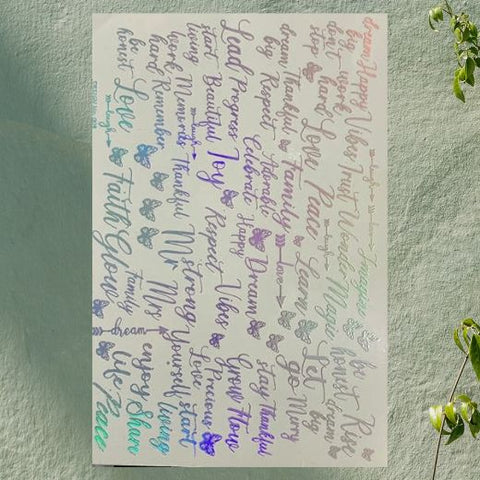 dream Happy laugh love Imagine be honest Rise
big work Vibes Trust Wonder Magic
don't stop hard Love Peace laugh Let dream big
dream Thankful Family love Learn go Merry
big Respect Adorable Dream stay Thankful
Lead Progress Celebrate Happy Grow Now
start Beautiful Joy Respect Vibes Love Precious
living Memories laugh Thankful Mr strong Yourself start living
work hard Remember Mrs enjoy Share
be honest Love laugh Faith Glow Family dream life Peace